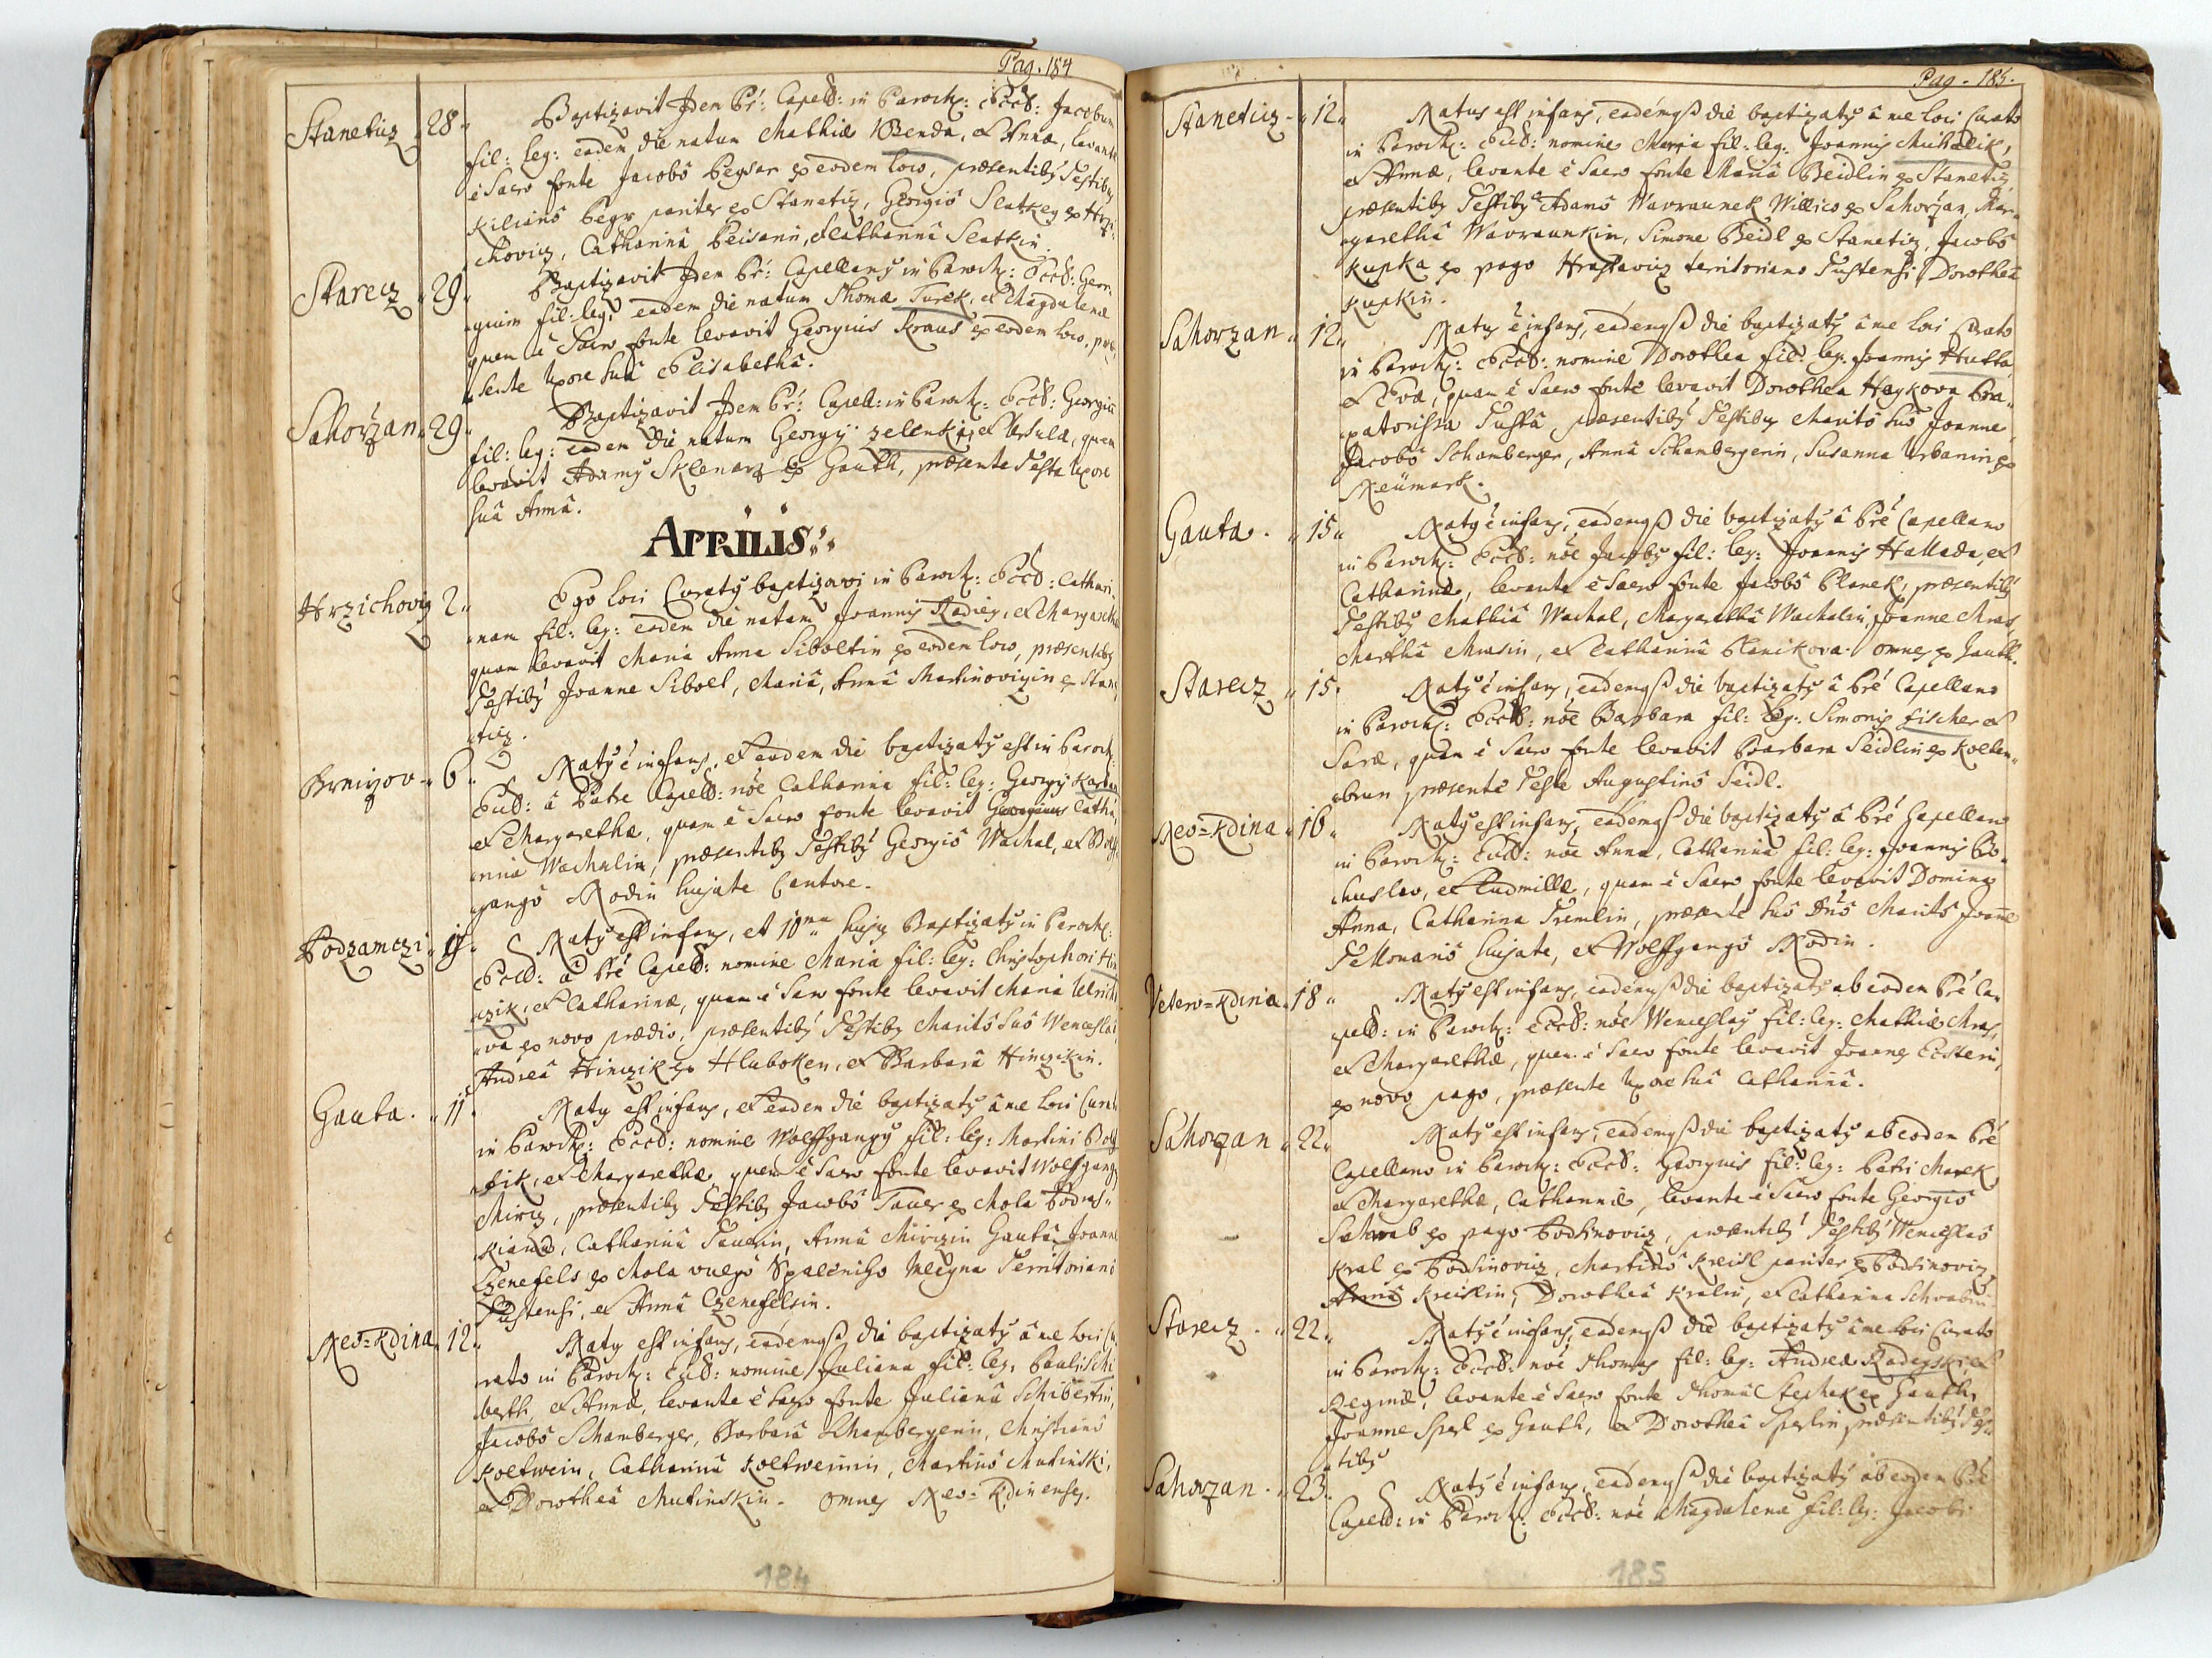 Pag. 184
Staneticz 28. Baptizavit Idem Pr: Capell: in Paroch: Eccl: Jacobum
fil: leg: eadem die natum Mathiæ Benda, et Annæ, levante
è Sacro fonte Jacobo Beyser ex eodem loco, præsentibus Testibus
Kiliano pariter ex Stanetiz, Georgio Slatkey ex Hrzi-
chovicz, Catharinâ Beisarin, et Catharinâ Slatkin.
Starecz 29. Baptizavit Idem Pr: Capellanus in Paroch: Eccl: Geor-
gium fil: leg: eadem die natum Thomæ Turek, et Magdalenæ
quem è Sacro fonte levavit Georgius Kraus ex eodem loco, præ-
sente Uxore suâ Elisabethâ.
Sahorzan 29. Baptizavit Idem Pr: Capell: in Paroch: Eccl: Georgium
fil: leg: eadem die natum Georgij Zelenki, et Ursulæ, quem
levavit Adamus Sklenarz ex Gauth, præsente Teste Uxore
suâ Annâ.
APRILIS
Hrzichoviz 2. Ego loci Curatus baptizavi in Paroch: Eccl: Cathari-
nam fil: leg: eadem die natam Joannis Radiey, et Margarethæ
quam levavit Maria Anna Siboltin ex eodem loco, præsentibus
Testibus Joanne Sibolt, Mariâ, Annâ Martinovizin ex Stane-
ticz.
Brnizov 6. Natus è infans, et eadem die baptizatus est in Paroch:
Eccl: â Patre Capell: nõe Catharina fil: leg: Georgij
et Margarethæ, quam è Sacro fonte levavit Catha-
rina Wachalin, præsentibus Testibus Georgio Wachal, et Wolf-
gango Modin hujate Cantore.
Podzamczi 9. Natus est infans, et 10ma hujus Baptizatus in Paroch:
Eccl: â Pré Capell: nomine Maria fil: leg: Christophori Hin-
czik, et Catharinæ, quam è Sacro fonte levavit Maria Ulricho-
va ex novo prædio, præsentibus Testibus Maritô Suô Wenceslao
Andreâ Hinczik ex Hluboken, et Barbarâ Hinczikin.
Gauta. 11. Natus est infans, et eadem die baptizatus â me loci Curato
in Paroch: Eccl: nomine Wolffgangus fil: leg: Martini
et Margarethæ, quem è Sacro fonte levavit Wolfgangus
Miricz, præsentibus Testibus Jacobo Tauer ex Mola Podras-
, Catharinâ Tauerin, Annâ Miriczin Gautâ, Joanne
Czenefels ex Mola vulgo Spalenicho Mlegna Territoriani
Tustensi, et Annâ Czenefelsin.
Neo=Kdina 12. Natus est infans, eademqß die baptizatus â me loci Cu-
rato in Paroch: Eccl: nomine Juliana fil: leg: Pauli Schi-
berth, et Annæ, levante è Sacro fonte Julianâ Schibertin,
Jacobo Schamberger, Barbarâ Schambergerin, Christiano
Koltwein, Catharinâ Koltweinin, Martino Mutinski,
et Dorotheâ Mutinskin. omnes Neo=Kdinenses.
184
Pag. 185.
Stanetiz 12. Natus est infans, eademqß die baptizatus â me loci Curato
in Paroch: Eccl: nomine Maria fil: leg: Joannis Michalik,
et Annæ, levante è Sacro fonte Mariâ Beidlin ex Stanetiz,
præsentibus Testibus Adamo Wavraunek Willico ex Sahorzan, Mar-
garethâ Wavraunkin, Simone Beidl ex Stanetiz, Jacobo
Kupka ex pago Hrastaviz territoriano Tustensi, Dorotheâ
Kupkin.
Sahorzan 12. Natus è infans, eademqß die baptizatus â me loci Curato
in Paroch: Eccl: nomine Dorothea fil: leg: Joannis Hutta
et Evæ, quam è Sacro fonte levavit Dorothea Haykova Bra-
xatorissa Tustâ, præsentibus Testibus Maritô Suô Joanne,
Jacobo Schamberger, Annâ Schambergerin, Susanna Urbanin ex
Neümark.
Gauta. 15. Natus è infans, eademqß die baptizatus â Pré Capellano
in Paroch: Eccl: nõe Jacobus fil: leg: Joannis Hallada, et
Catharinæ, levante è Sacro fonte Jacobo Planek, præsentibus
Testibus Mathiâ Wachal, Margarethâ Wachalin, Joanne Mras,
Marthâ Mrasin, et Catharinâ Planikova. omnes ex Gauth.
Starecz 15. Natus è infans, eademqß die baptizatus â Pré Capellano
in Paroch: Eccl: nõe Barbara fil: leg: Simonis Fischer et
Saræ, quam è Sacro fonte levavit Barbara Seidlin ex Kolten-
brun præsente Teste Augustino Seidl.
Neo=Kdina 16. Natus est infans, eademqß die baptizatus â Pré Capellano
in Paroch: Eccl: nõe Anna, Catharina fil: leg: Joannis Bo-
huslav, et Ludmillæ, quam è Sacro fonte levavit Domina
Anna, Catharina Tremlin, præsente suô Dnô Maritô Joanne
Telonario hujate, et Wolffgangô Modin.
Vetero=Kdina 18. Natus est infans, eademqß die baptizatus ab eodem Pré Ca-
pell: in Paroch: Eccl: nõe Wenceslaus fil: leg: Mathiæ Mras,
et Margarethæ, quem è Sacro fonte levavit Joannes
ex novo pago, præsente Uxore suâ Catharinâ.
Sahorzan 22. Natus est infans, eademqß die baptizatus ab eodem Pré
Capellano in Paroch: Eccl: Georgius fil: leg: Petri Marek
et Margarethæ, Catharinæ, levante è Sacro fonte Georgio
ex pago Podhinoviz, præsentibus Testibus Wenceslao
Kral ex Podhinoviz, Martino Kreisl pariter ex Podhinoviz,
Annâ Kreislin, Dorotheâ Kralin, et Catharina Schwabin.
Starecz. 22. Natus è infans, eademqß die baptizatus â me loci Curato
in Paroch: Eccl: nõe Thomas fil: leg: Andreæ Radeyski, et
Reginæ, levante è Sacro fonte Thomâ Stephek ex Gauth,
Joanne Sperl ex Gauth, et Dorotheâ Sperlin præsentibus Tes-
tibus
Sahorzan. 23. Natus è infans, eademqß die baptizatus ab eodem Pré
Capell: in Paroch: Eccl: nõe Magdalena fil: leg: Jacobi
185